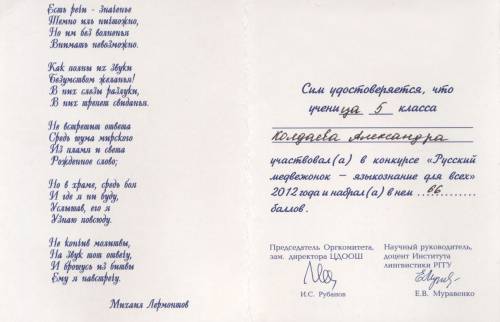 Есть речи - значенье
Темно иль ничтожно,
Но им без волненья
Внимать невозможно.
Как полны их звуки
Безумством желанья!
В них слезы разлуки,
В них трепет свиданья.
Не встретит ответа
Средь шума мирского
Из пламя и света
Рожденное слово;
Но в храме, средь боя
И где я ни буду,
Услышав, его я
Узнаю повсюду.
Не кончив молитвы,
На звук тот отвечу,
И брошусь из битвы
Ему я навстречу.
Михаил Лермонтов
Сим удостоверяется, что
учени ца 5 класса
Колдаева Александра
участвовал(а) в конкурсе «Русский
медвежонок – языкознание для всех»
2012 года и набрал(а) в нем ..66..........
баллов.
Председатель Оргкомитета,
зам. директора ЦДООШ
И.С. Рубанов
Научный руководитель,
доцент Института
лингвистики РГГУ
Е.В. Муравенко